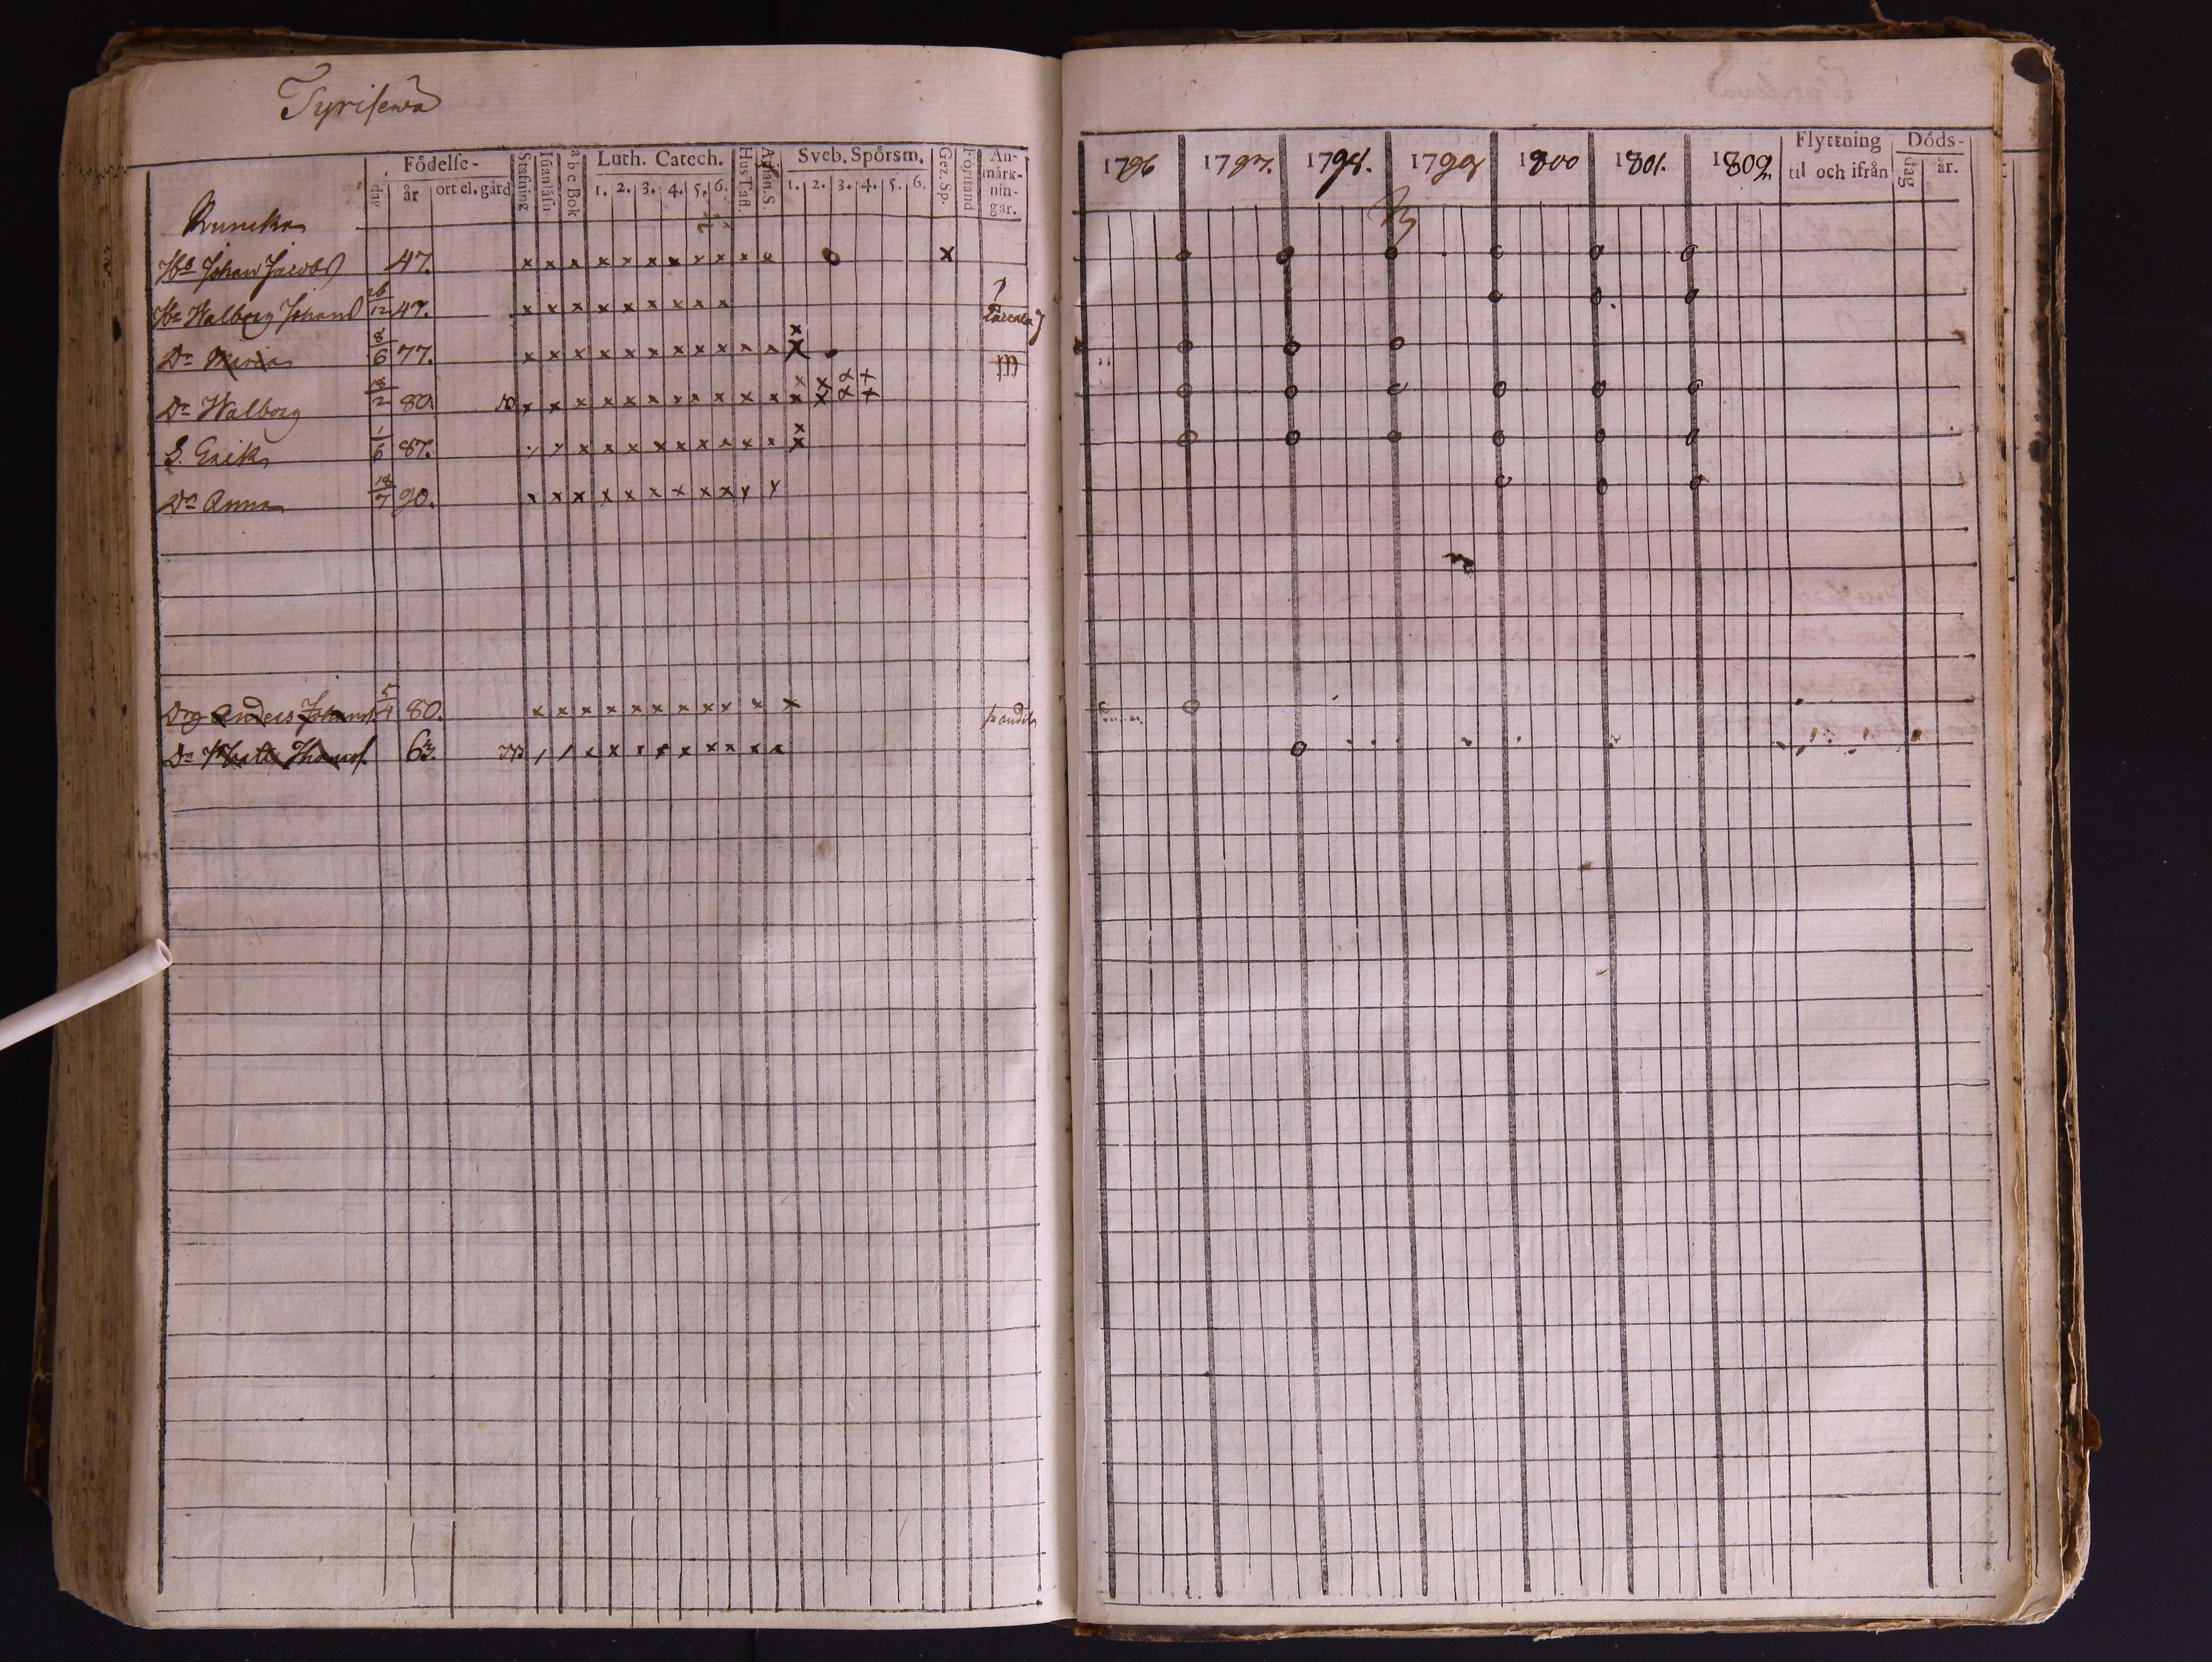 Tyrisewä
Födelse-
dag
år
ort el. gård
Stafning
Innanläsn
a b c Bok
Luth. Catech.
1. 2. 3. 4. 5. 6.
Hus Tafl.
Athan. S.
Sveb. Spörsm.
1. 2. 3. 4. 5. 6.
Gez. Sp.
Förstånd
An-
märk-
nin-
gar.
1796 1797. 1798. 1799 1800 1801. 1802
Flyttning
til och ifrån
Döds-
dag
år.
Hb Johan Jacobs 47. x x x x x x x x x x x x
Hu Walborg Johansd 26/12 47. x x x x x x x x x
Dr Maria 8/6 77. x x x x x x x x x x x x x
Dr Walborg 18/2 80. x x x x x x x x x x x x x x x x x x x
S. Erik 1/6 87. x x x x x x x x x x x x x
Dr Anna 18/7 90. x x x x x x x x x x x
Drg Anders Johans 5/4 80. x x x x x x x x x x x
Dr Thoms. 63. x x x x x x x x x